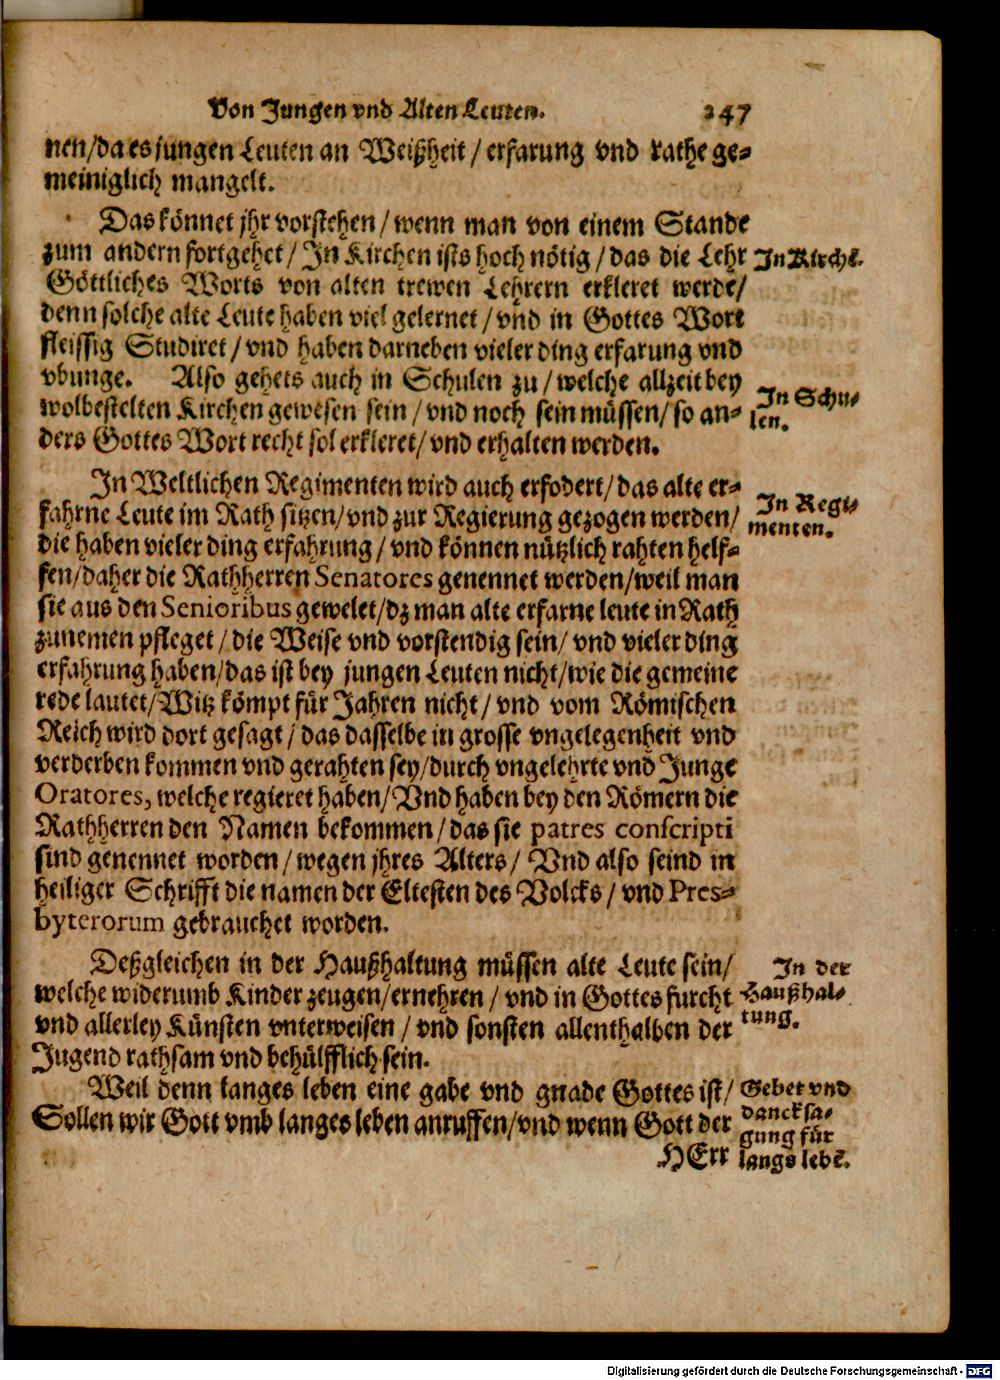 Von Jungen vnd Alten Leuten. 247
nen/da es jungen Leuten an Weißheit/erfarung vnd rathe ge-
meiniglich mangelt.
Das könnet jhr vorstehen/wenn man von einem Stande
zum andern fortgehet/In Kirchen ists hoch nötig/das die Lehr
In Kirchē.
Göttliches Worts von alten trewen Lehrern erkleret werde/
denn solche alte Leute haben viel gelernet/vnd in Gottes Wort
fleissig Studiret/vnd haben darneben vieler ding erfarung vnd
vbunge. Also gehets auch in Schulen zu/welche allzeit bey
In Schu-
len.
wolbestelten Kirchen gewesen sein/vnd noch sein müssen/so an-
ders Gottes Wort recht sol erkleret/vnd erhalten werden.
In Weltlichen Regimenten wird auch erfodert/das alte er-
In Regi-
menten.
fahrne Leute im Rath sitzen/vnd zur Regierung gezogen werden/
die haben vieler ding erfahrung/vnd können nützlich rahten helf-
fen/daher die Rathherren Senatores genennet werden/weil man
sie aus den Senioribus gewelet/dz man alte erfarne leute in Rath
zunemen pfleget/die Weise vnd vorstendig sein/vnd vieler ding
erfahrung haben/das ist bey jungen Leuten nicht/wie die gemeine
rede lautet/Witz kömpt für Jahren nicht/vnd vom Römischen
Reich wird dort gesagt/das dasselbe in grosse vngelegenheit vnd
verderben kommen vnd gerahten sey/durch vngelehrte vnd Junge
Oratores, welche regieret haben/Vnd haben bey den Römern die
Rathherren den Namen bekommen/das sie patres conscripti
sind genennet worden/wegen jhres Alters/Vnd also seind in
heiliger Schrifft die namen der Eltesten des Volcks/vnd Pres-
byterorum gebrauchet worden.
Deßgleichen in der Haußhaltung müssen alte Leute sein/
In der
Haußhal-
tung.
welche widerumb Kinder zeugen/ernehren/vnd in Gottes furcht
vnd allerley Künsten vnterweisen/vnd sonsten allenthalben der
Jugend rathsam vnd behülfflich sein.
Weil denn langes leben eine gabe vnd gnade Gottes ist/
Gebet vnd
dancksa-
gung für
langs lebē.
Sollen wir Gott vmb langes leben anruffen/vnd wenn Gott der
HErr
Digitalisierung gefördert durch die Deutsche Forschungsgemeinschaft - DFG